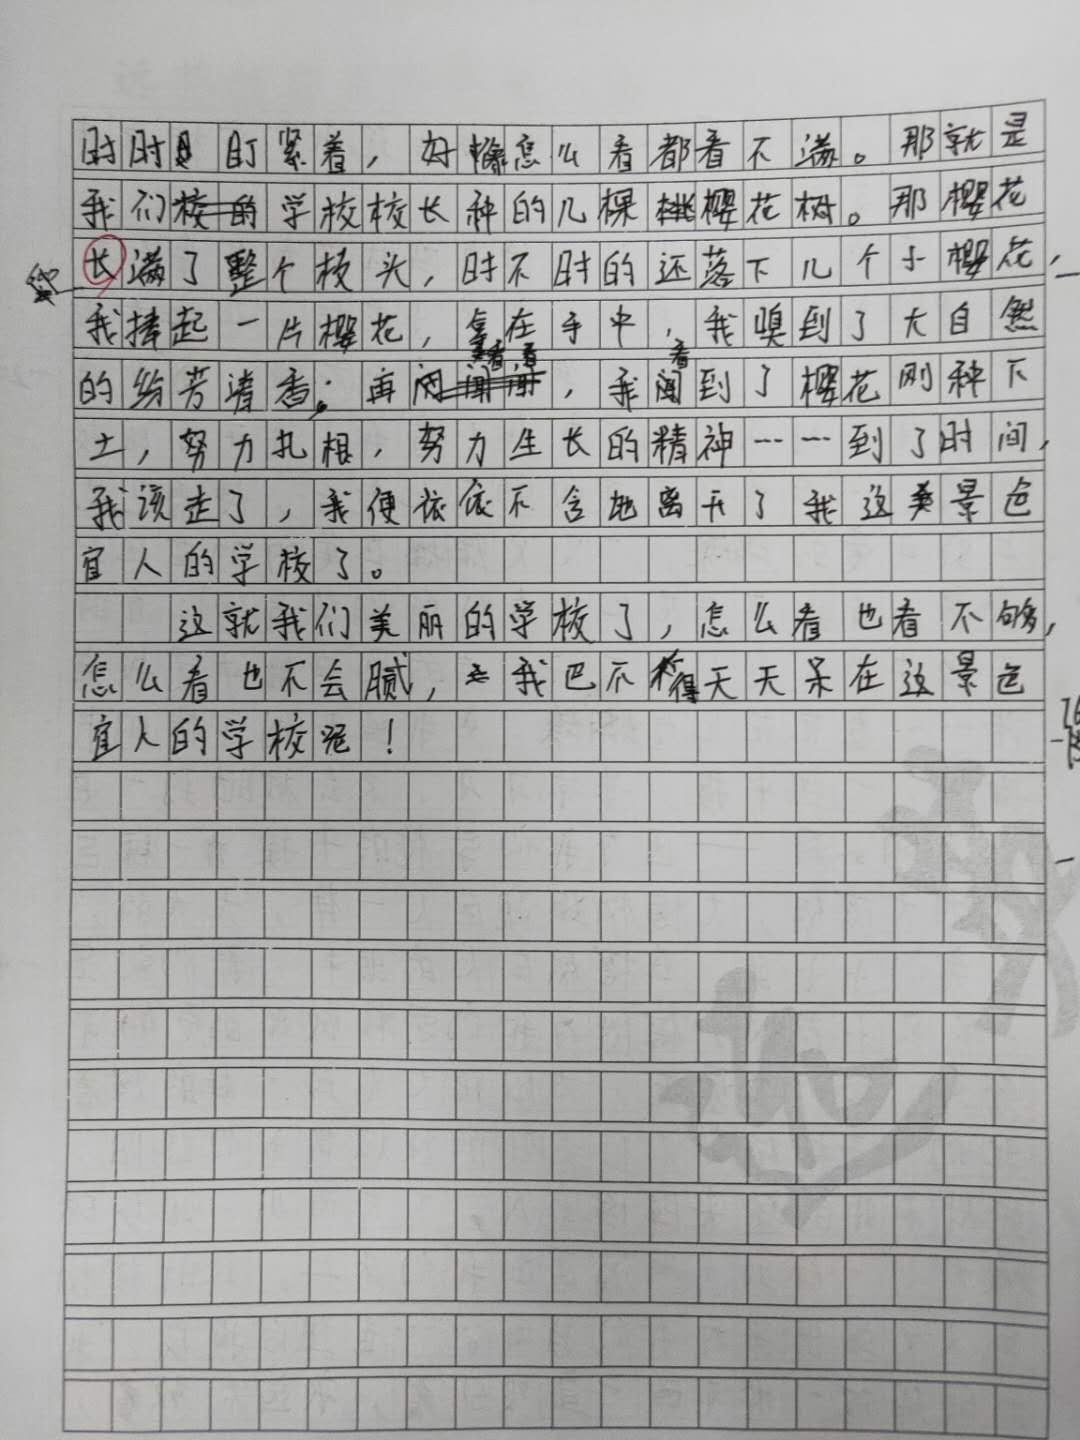 时时盯紧着，好像怎么看都看不满。那就是
我们学校校长种的几棵樱花树。那樱花
长满了整个枝头，时不时的还落下几个小樱花，
我捧起一片樱花，拿在手中，我嗅到了大自然
的纷芳清香；再闭看看，我看到了樱花刚种下
土，努力扎根，努力生长的精神……到了时间，
我该走了，我便依依不舍地离开了我这美景色
宜人的学校了。
这就我们美丽的学校了，怎么看也看不够，
怎么看也不会腻，我巴不得天天呆在这景色
宜人的学校呢！